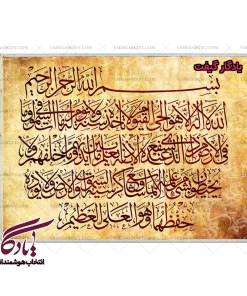 یادگار گیفت
بسم الله الرحمن الرحيم
الله لا اله الا هو الحي القيوم لا تاخذه سنة ولا نوم له ما في السموات وما
في الارض من ذا الذي يشفع عنده الا باذنه يعلم ما بين ايديهم وما خلفهم ولا
يحيطون بشيء من علمه الا بما شاء وسع كرسيه السموات والارض ولا يؤده
حفظهما وهو العلي العظيم
یادگار
انتخاب هوشمندانه